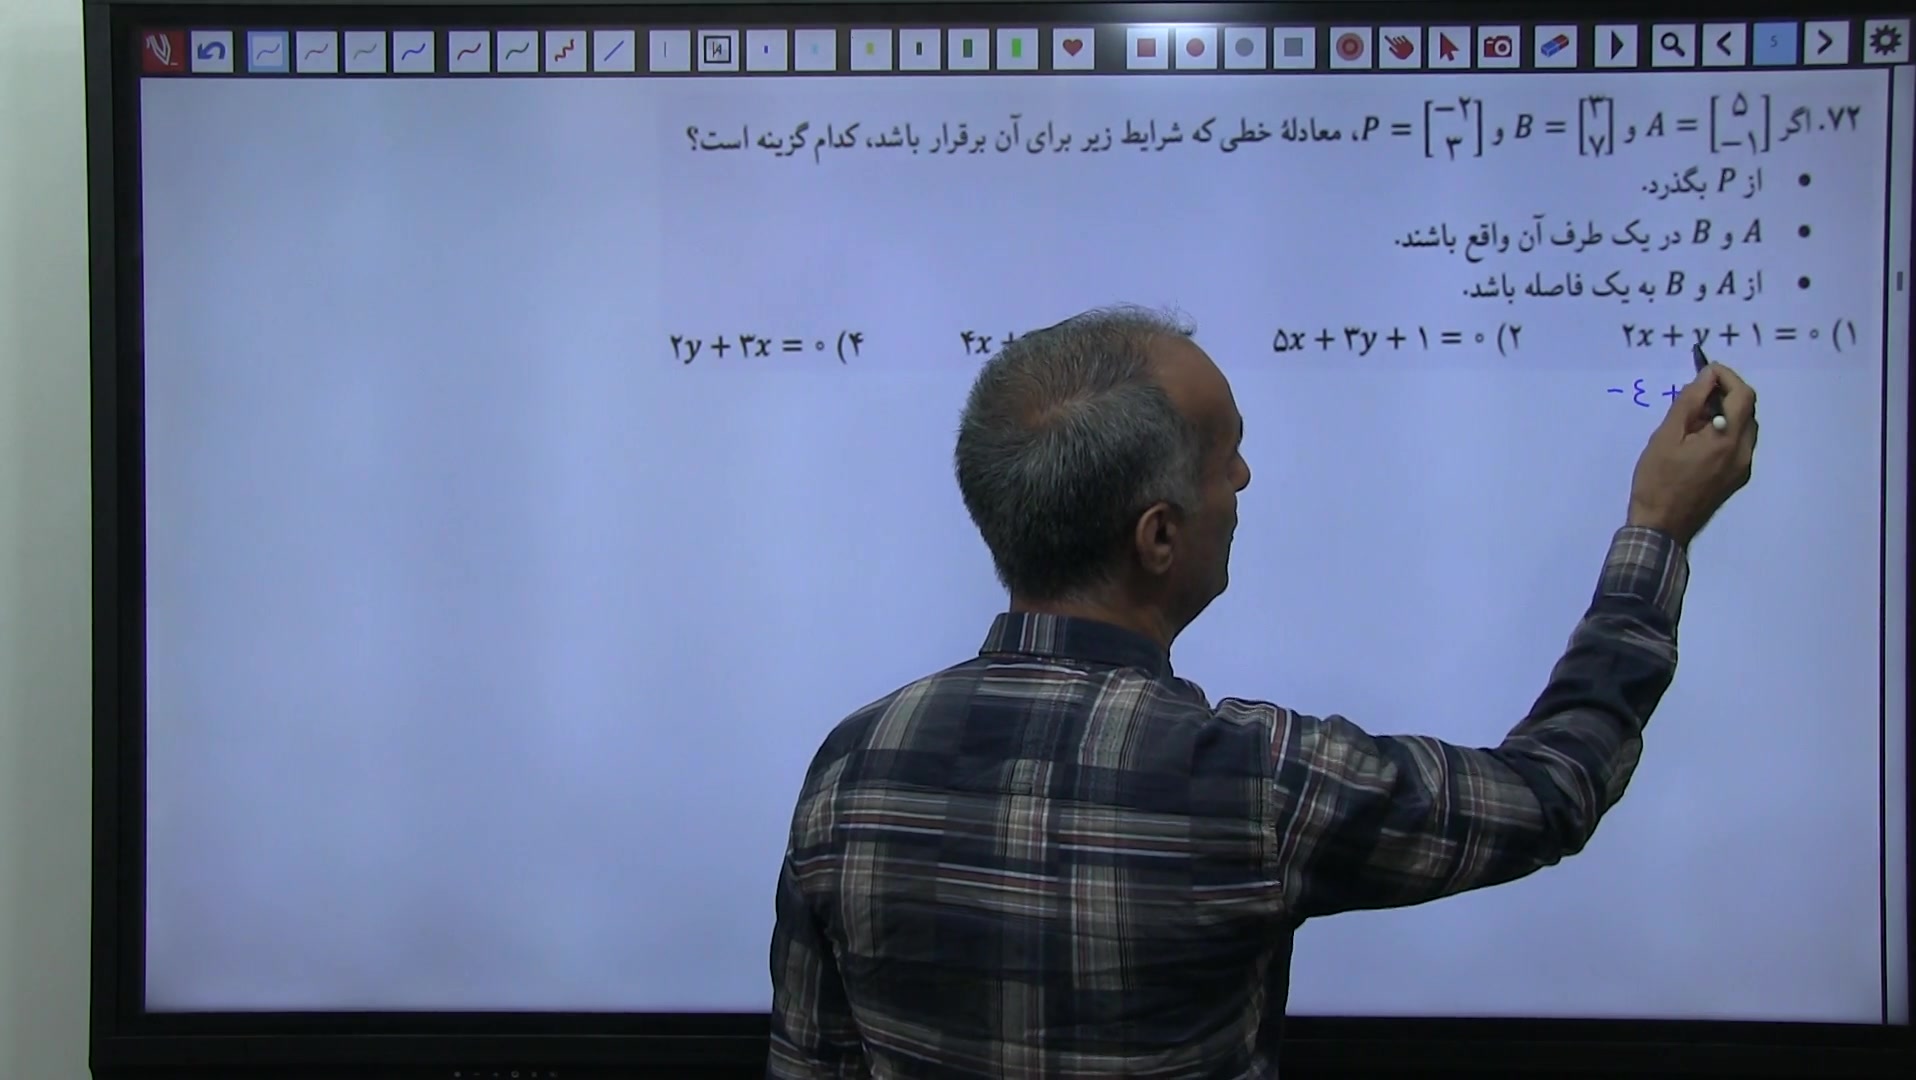 ۷۲. اگر A = [۵ −۱] و B = [۳ ۷] و P = [−۲ ۳]، معادلهٔ خطی که شرایط زیر برای آن برقرار باشد، کدام گزینه است؟
• از P بگذرد.
• A و B در یک طرف آن واقع باشند.
• از A و B به یک فاصله باشد.
۱) ۲x + y + ۱ = ۰
۲) ۵x + ۳y + ۱ = ۰
۴x +
۴) ۲y + ۳x = ۰
−٤ +
5